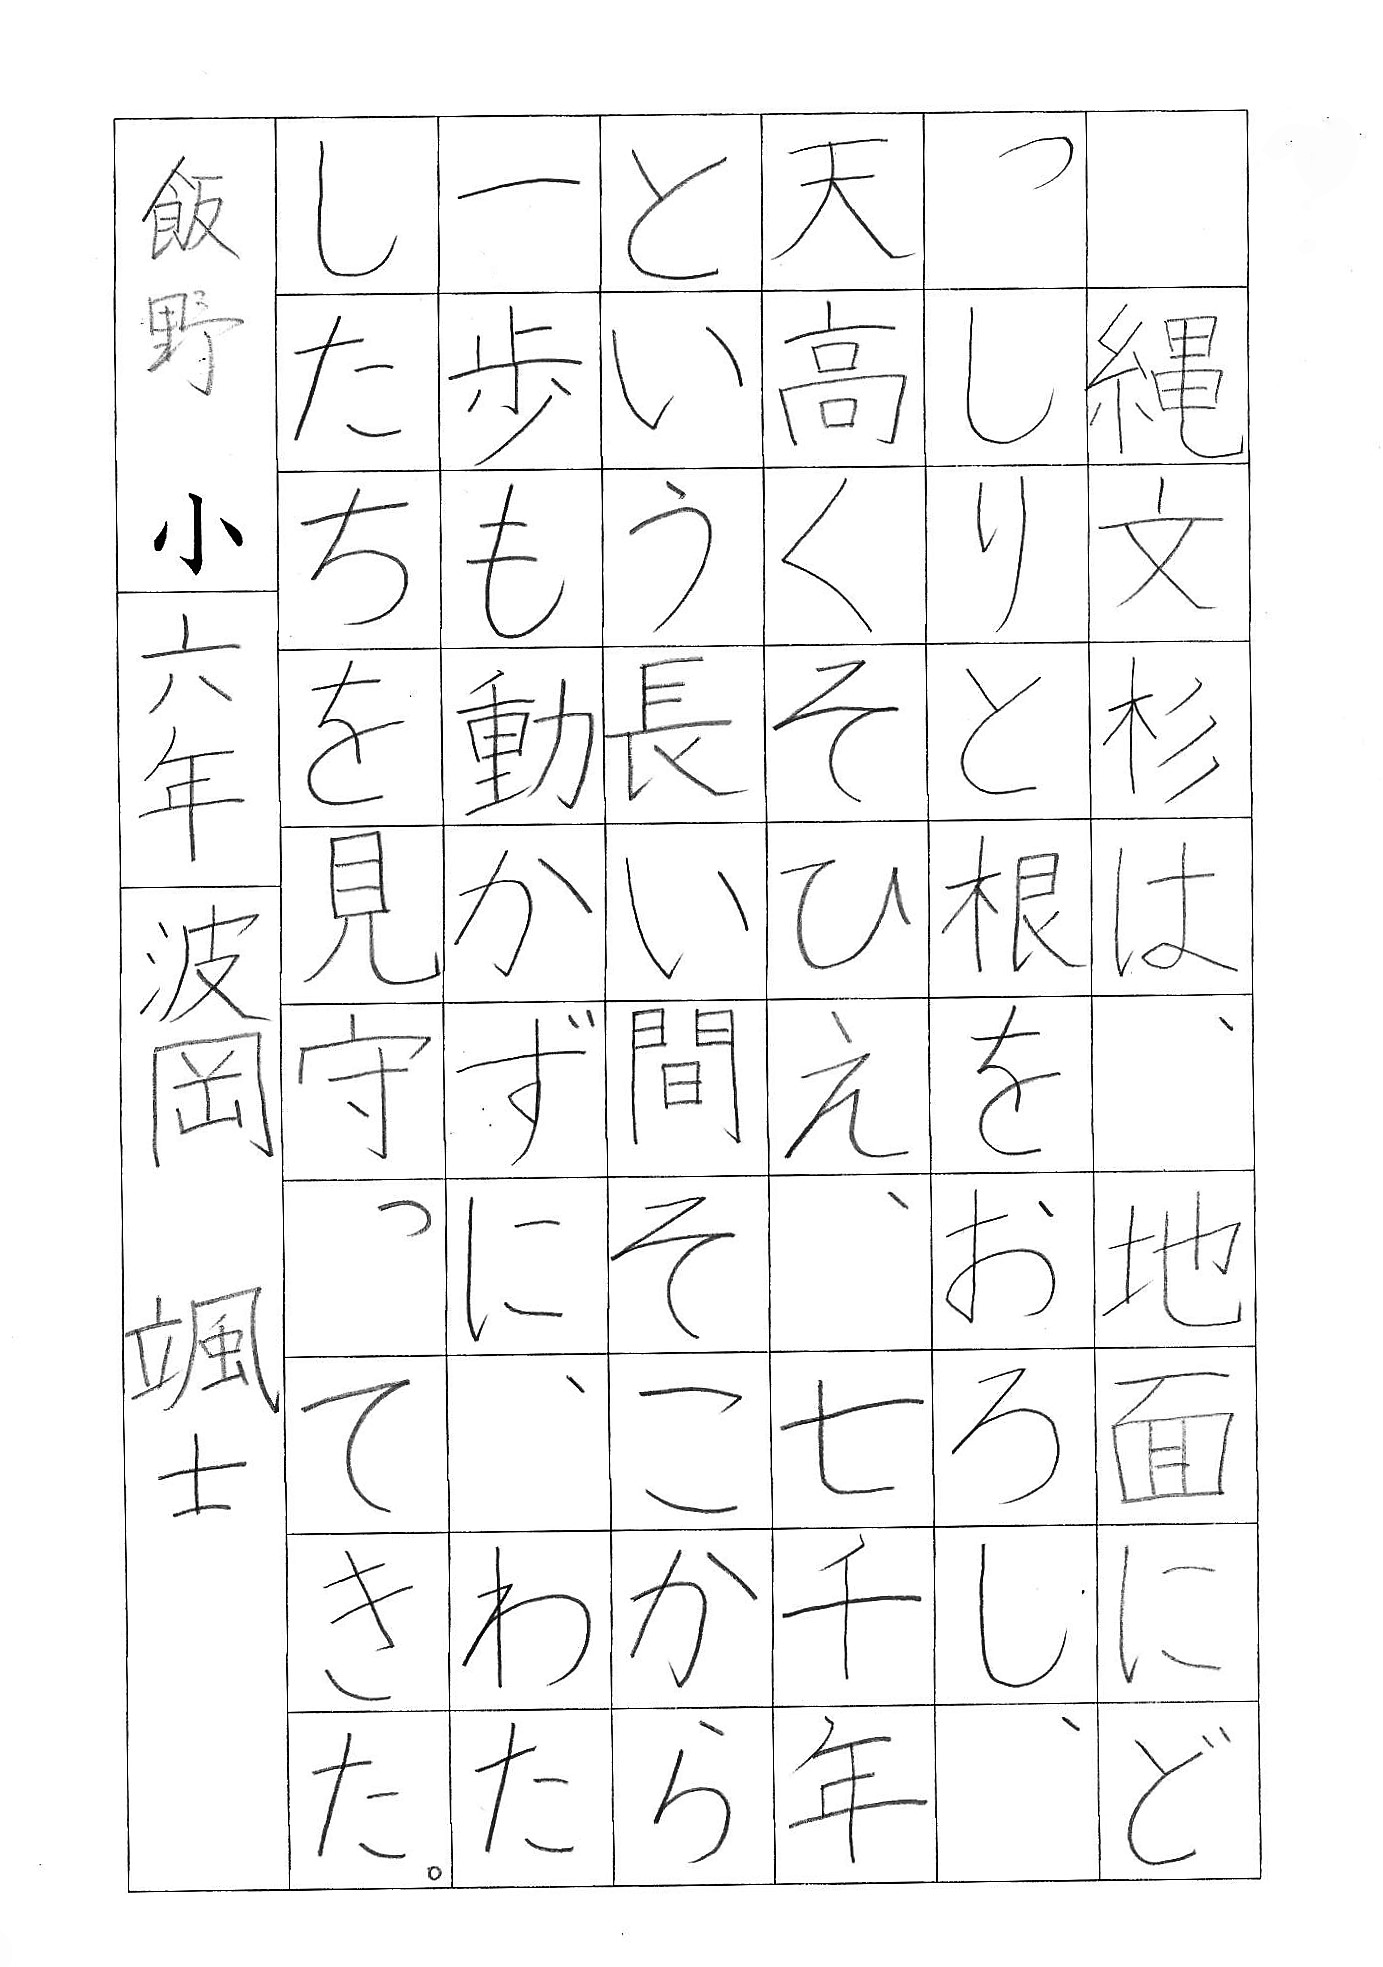 縄文杉は、地面にど
っしりと根をおろし、
天高くそひえ、七千年
という長い間そこから
一歩も動かずに、わた
したちを見守ってきた。
飯野小六年波岡颯士